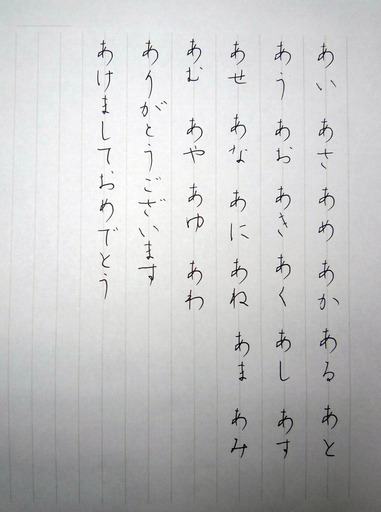 あい あさ あめ あか ある あと
あう あお あき あく あし あす
あせ あな あに あね あま あみ
あむ あや あゆ あわ
ありがとうございます
あけましておめでとう